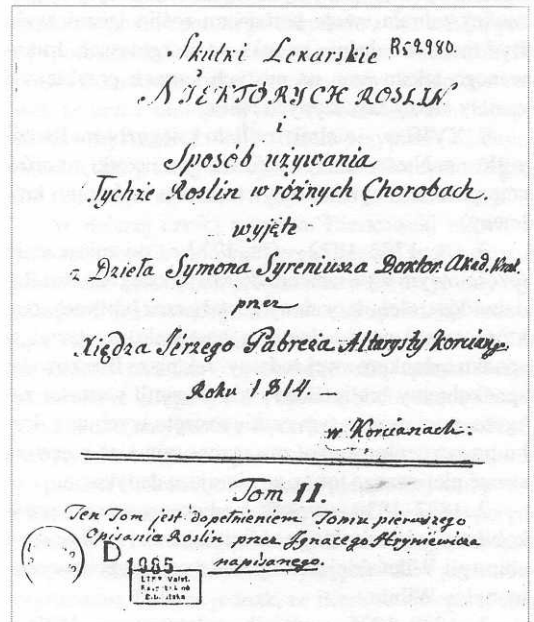 Skutki Lekarskie
RS 2980.
NIEKTÓRYCH ROSLIN
i
Sposob uzywania
Tychże Roslin w różnych Chorobach,
wyjęte
z Dzieła Symona Syreniusza Doktor. Akad. Krak.
przez
Xiędza Jerzego Pabreża Altarysty korciang.
Roku 1814.
w Korcianach.
Tom II.
Ten Tom jest dopełnieniem Tomu pierwszego
Opisania Roslin przez Ignacego
napisanego.
D 1985